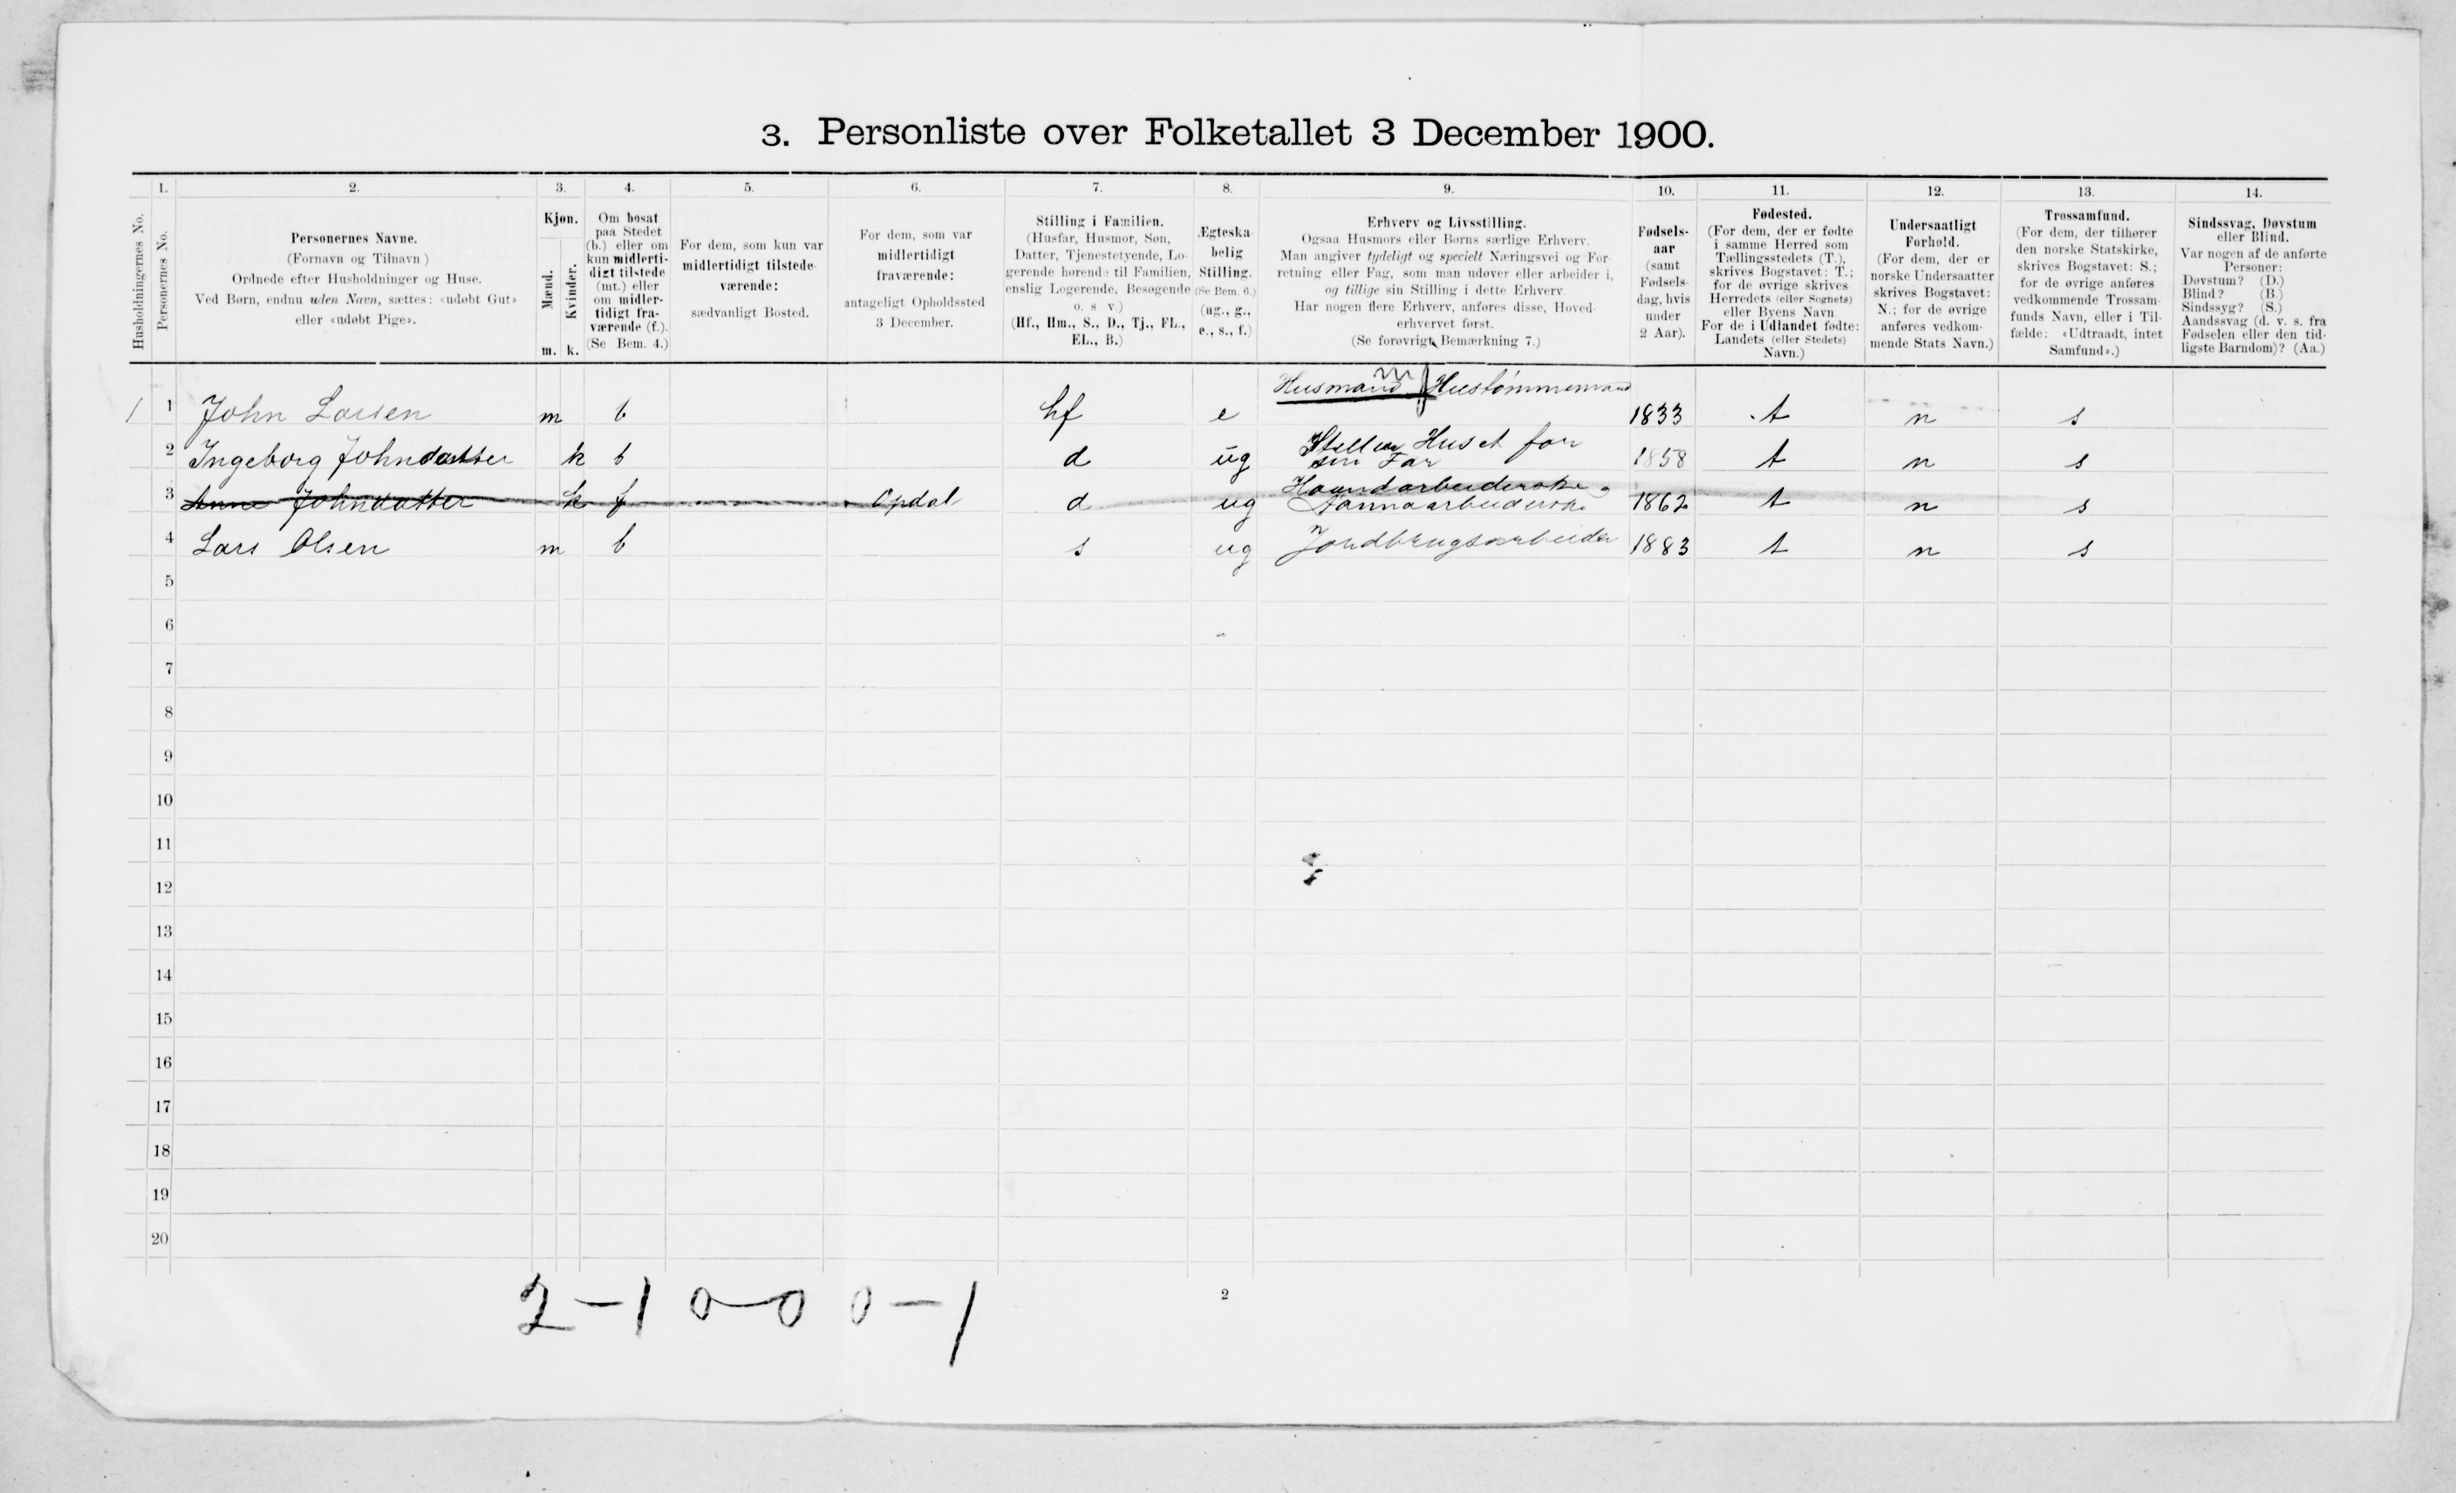 3. Personliste over Folketallet 3 December 1900.
1. 2. 3. 4. 5. 6. 7. 8. 9. 10. 11. 12. 13. 14.
Husholdningernes No.
Personernes No.
Personernes Navne.
(Fornavn og Tilnavn)
Ordnede efter Husholdninger og Huse.
Ved Børn, endnu uden Navn, sættes: «udøbt Gut»
eller «udøbt Pige».
Kjøn.
Mænd.
Kvinder.
m. k.
Om bosat
paa Stedet
(b.) eller om
kun midlerti-
digt tilstede
(mt.) eller
om midler-
tidigt fra-
værende (f.).
(Se Bem. 4.)
For dem, som kun var
midlertidigt tilstede-
værende:
sædvanligt Bosted.
For dem, som var
midlertidigt
fraværende:
antageligt Opholdssted
3 December.
Stilling i Familien.
(Husfar, Husmor, Søn,
Datter, Tjenestetyende, Lo-
gerende hørende til Familien,
enslig Logerende, Besøgende
o. s. v.)
(Hf., Hm., S., D., Tj., FL.,
EL., B.)
Ægteska-
belig
Stilling.
(Se Bem. 6.)
(ug., g.,
e., s., f.)
Erhverv og Livsstilling.
Ogsaa Husmors eller Børns særlige Erhverv.
Man angiver tydeligt og specielt Næringsvei og For-
retning eller Fag, som man udøver eller arbeider i,
og tillige sin Stilling i dette Erhverv.
Har nogen flere Erhverv, anføres disse, Hoved-
erhvervet først.
(Se forøvrigt Bemærkning 7.)
Fødsels-
aar
(samt
Fødsels-
dag, hvis
under
2 Aar).
Fødested.
(For dem, der er fødte
i samme Herred som
Tællingsstedets (T.),
skrives Bogstavet: T.;
for de øvrige skrives
Herredets (eller Sognets)
eller Byens Navn
For de i Udlandet fødte:
Landets (eller Stedets)
Navn.)
Undersaatligt
Forhold.
(For dem, der er
norske Undersaatter
skrives Bogstavet:
N.; for de øvrige
anføres vedkom-
mende Stats Navn.)
Trossamfund.
(For dem, der tilhører
den norske Statskirke,
skrives Bogstavet: S.;
for de øvrige anføres
vedkommende Trossam-
funds Navn, eller i Til-
fælde: «Udtraadt, intet
Samfund».)
Sindssvag, Døvstum
eller Blind.
Var nogen af de anførte
Personer:
Døvstum? (D.)
Blind? (B.)
Sindssyg? (S.)
Aandssvag (d. v. s. fra
Fødselen eller den tid-
ligste Barndom)? (Aa.)
Husmand Hustømmermand
1 1 John Larsen m b hf e 1833 t n s
2 Ingeborg Johnsdatter k b d ug Steller Huset for 1858 t n s
sin Far
Haandarbeiderske
3 Anne Johnsdatter k f Opdal d ug 1862 t n s
4 Lars Olsen m b s ug Jordbrugsarbeider 1883 t n s
5
6
7
8
9
10
11
12
13
14
15
16
17
18
19
20
2-1 0-0 0-1
2